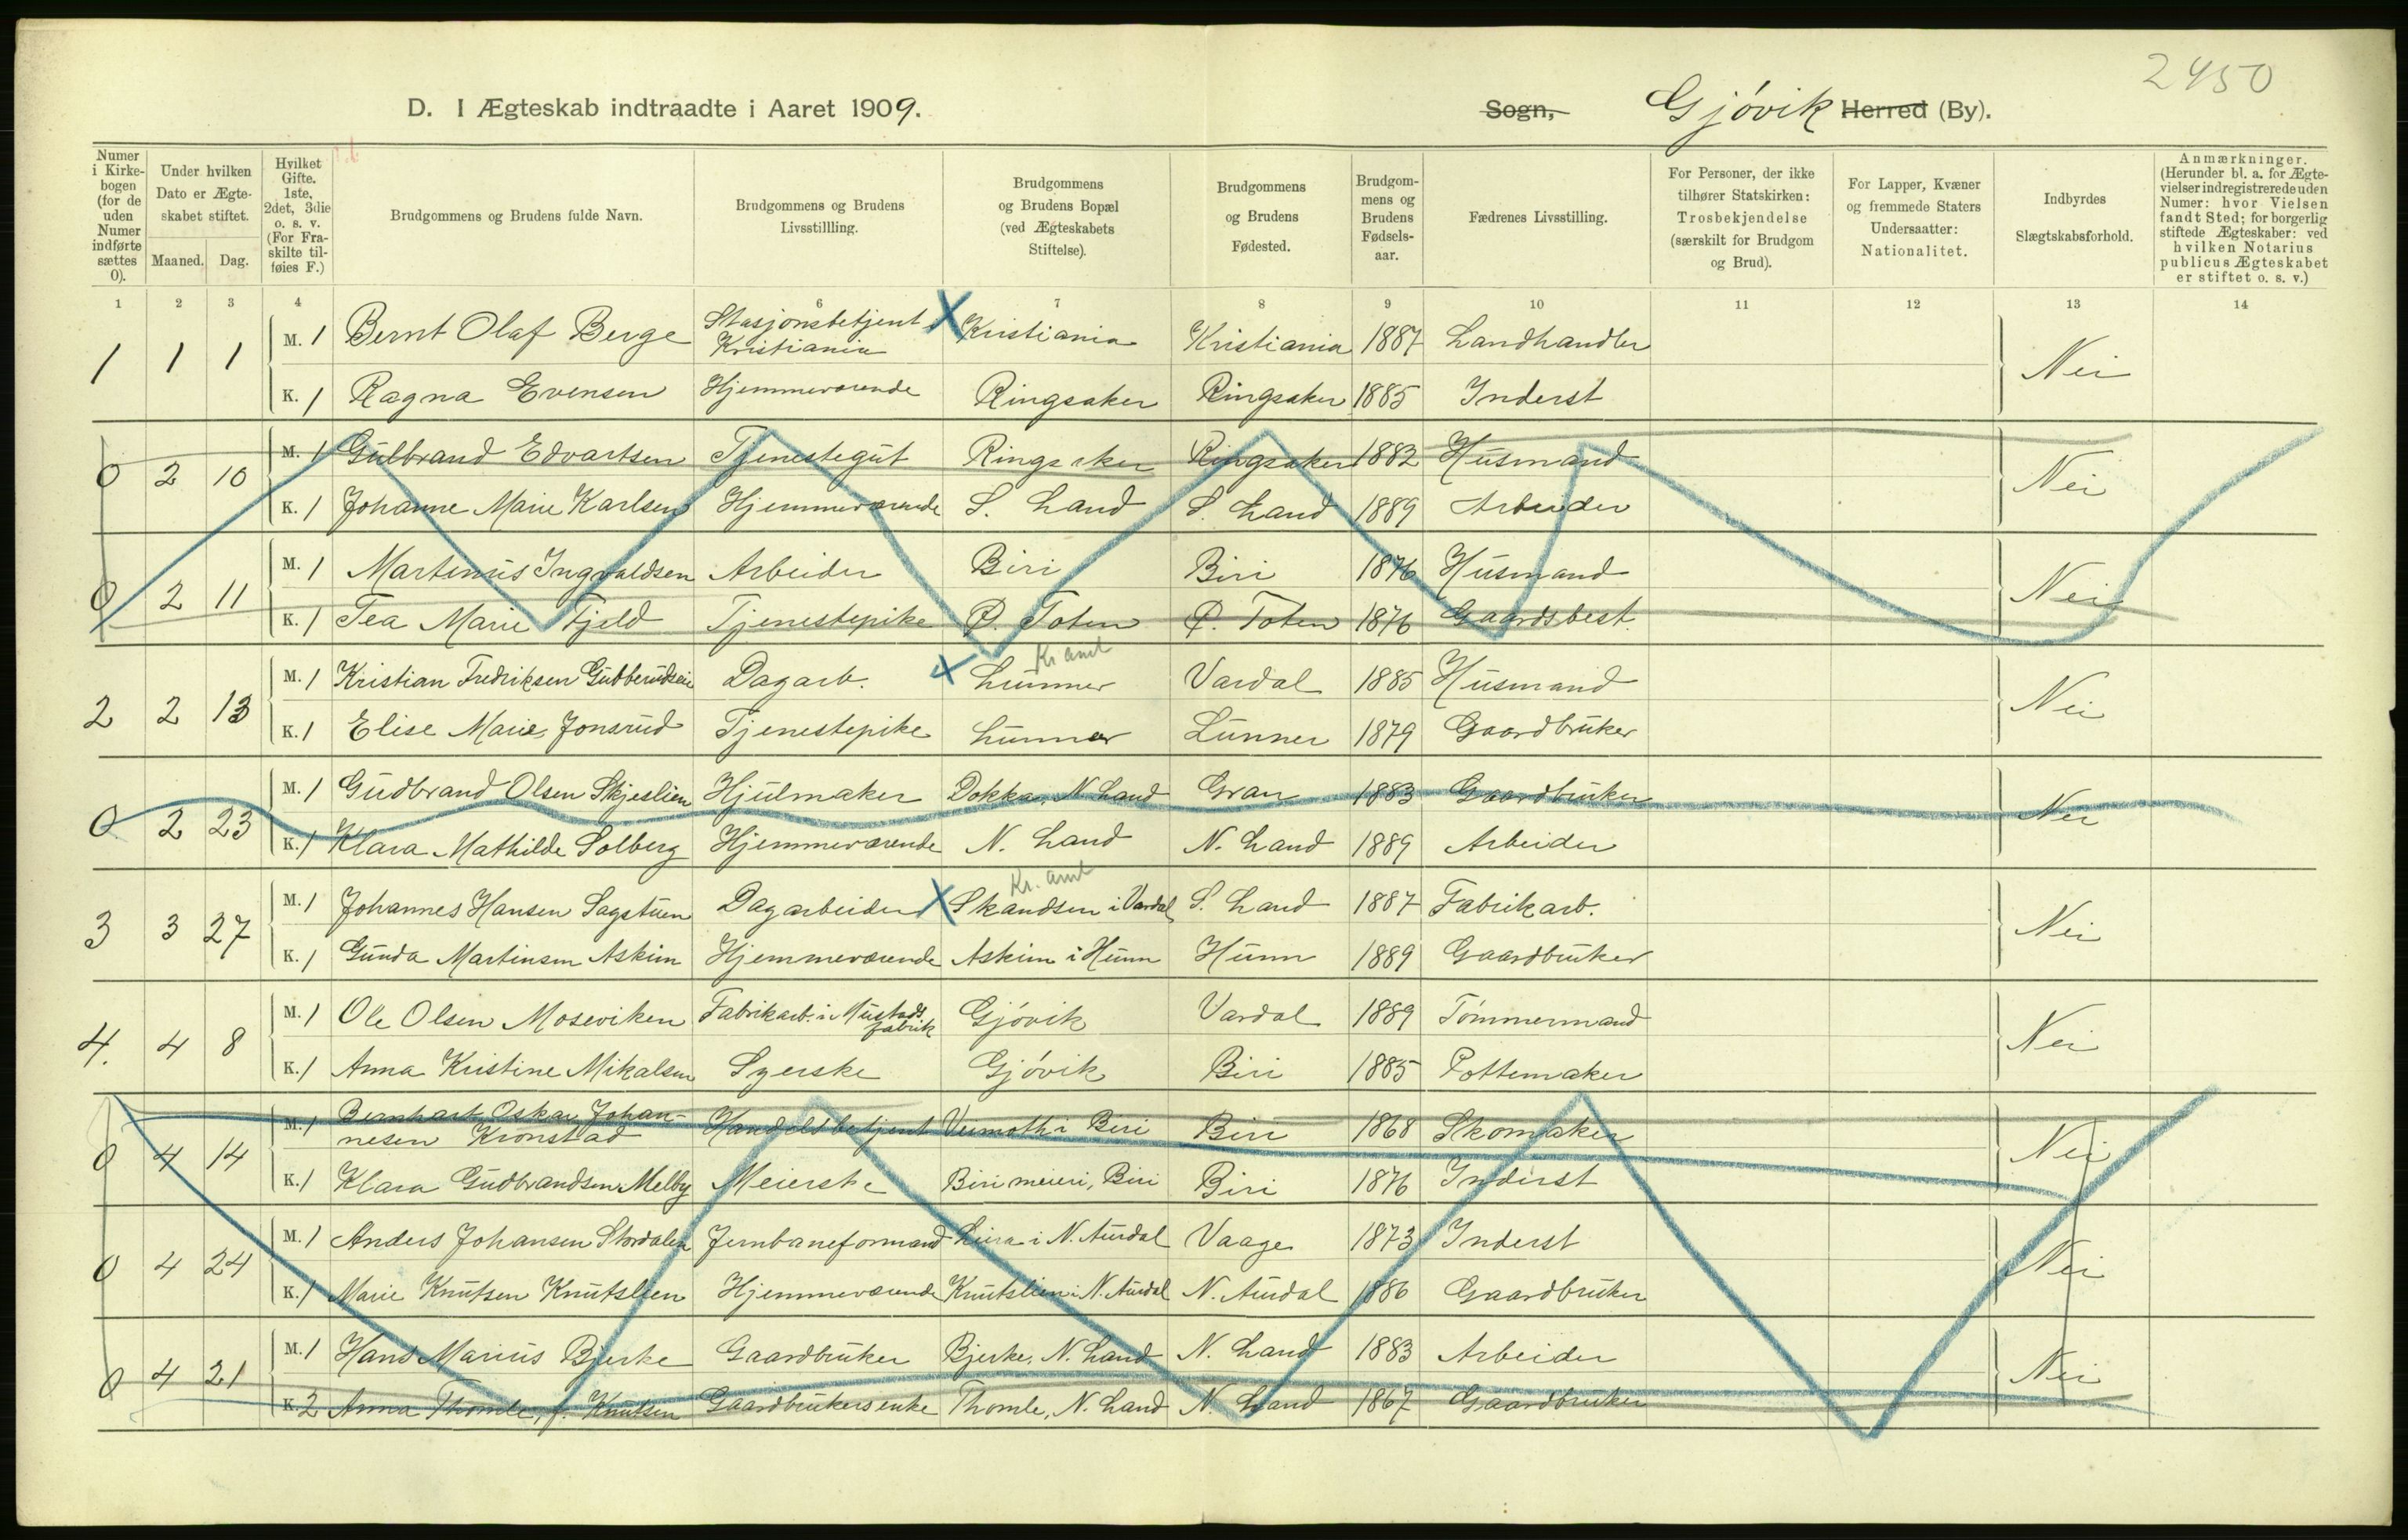 2450
D. I Ægteskab indtraadte i Aaret 1909.
Sogn, Gjövik Herred (By).
Numer i Kirkebogen (for de uden Numer indførte sættes 0).
Under hvilken Dato er Ægteskabet stiftet.
Maaned. Dag.
Hvilket Gifte. 1ste, 2det, 3die o. s. v. (For Fraskilte tilføies F.)
Brudgommens og Brudens fulde Navn.
Brudgommens og Brudens Livsstillling.
Brudgommens og Brudens Bopæl (ved Ægteskabets Stiftelse).
Brudgommens og Brudens Fødested.
Brudgommens og Brudens Fødselsaar.
Fædrenes Livsstilling.
For Personer, der ikke tilhører Statskirken: Trosbekjendelse (særskilt for Brudgom og Brud).
For Lapper, Kvæner og fremmede Staters Undersaatter: Nationalitet.
Indbyrdes Slægtskabsforhold.
Anmærkninger. (Herunder bl. a. for Ægtevielser indregistrerede uden Numer: hvor Vielsen fandt Sted; for borgerlig stiftede Ægteskaber: ved hvilken Notarius publicus Ægteskabet er stiftet o. s. v.)
1 2 3 4 6 7 8 9 10 11 12 13 14
1 1 1 M. 1 Bernt Olaf Berge Stasjonsbetjent Kristiania X Kristiania Kristiania 1887 Landhandler Nei
K. 1 Ragna Evensen Hjemmeværende Ringsaker Ringsaker 1885 Inderst
0 2 10 M. 1 Gulbrand Edvartsen Tjenestegut Ringsaker Ringsaker 1882 Husmand Nei
K. 1 Johanne Marie Karlsen Hjemmeværende S. Land S. Land 1889 Arbeider
0 2 11 M. 1 Martinus Ingvaldsen Arbeider Biri Biri 1876 Husmand Nei
K. 1 Tea Marie Fjeld Tjenestepike Ø. Toten Ø. Toten 1876 Gaardsbest.
Kr amt
2 2 13 M. 1 Kristian Fredriksen Gudberudseie Dagarb. X Lunner Vardal 1885 Husmand Nei
K. 1 Elise Marie Jonsrud Tjenestepike Lunner Lunner 1879 Gaardbruker
0 2 23 M. 1 Gudbrand Olsen Skjeslien Hjulmaker Dokka, N. Land Gran 1883 Gaardbruker Nei
K. 1 Klara Mathilde Solberg Hjemmeværende N. Land N. Land 1889 Arbeider
Kr. amt
3 3 27 M. 1 Johannes Hansen Sagstuen Dagarbeider X Skandsen i Vardal S. Land 1887 Fabrikarb. Nei
K. 1 Gunda Martinsen Askim Hjemmeværende Askim i Hunn Hunn 1889 Gaardbruker
4. 4 8 M. 1 Ole Olsen Moseviken Fabrikarb. i Mustads fabrik Gjövik Vardal 1889 Tömmermand Nei
K. 1 Anna Kristine Mikalsen Syerske Gjövik Biri 1885 Pottemaker
0 4 14 M. 1 Bernhart Oskar Johannesen Kronstad Handelsbetjent i Biri Biri 1868 Skomaker Nei
K. 1 Klara Gudbrandsen Melby Meierske Biri meieri, Biri Biri 1876 Inderst
0 4 24 M. 1 Anders Johansen Stordalen Jernbaneformand i N. Aurdal Vaage 1873 Inderst Nei
K. 1 Marie Knutsen Knutslien Hjemmeværende Knutslien i N. Aurdal N. Aurdal 1886 Gaardbruker
0 4 21 M. 1 Hans Marius Bjerke Gaardbruker Bjerke, N. Land N. Land 1883 Arbeider Nei
K. 2 Anna Thomle, f. Knutsen Gaardbrukersenke Thomle, N. Land N. Land 1867 Gaardbruker